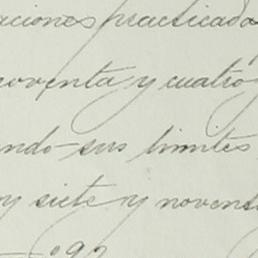 aciones practicado
noventa y cuatro
ando sus limites
y siete y novent
092